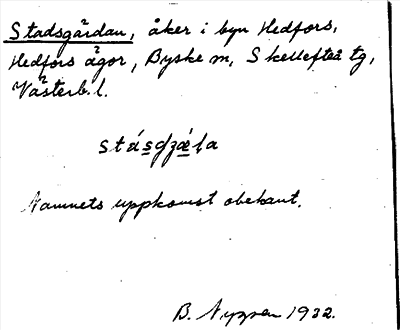 Stadsgärdan, åker i byn Hedfors,
Hedfors ägor, Byske sn, Skellefteå tg,
Västerb. l.
Namnets uppkomst obekant.
B. Nygren 1932.